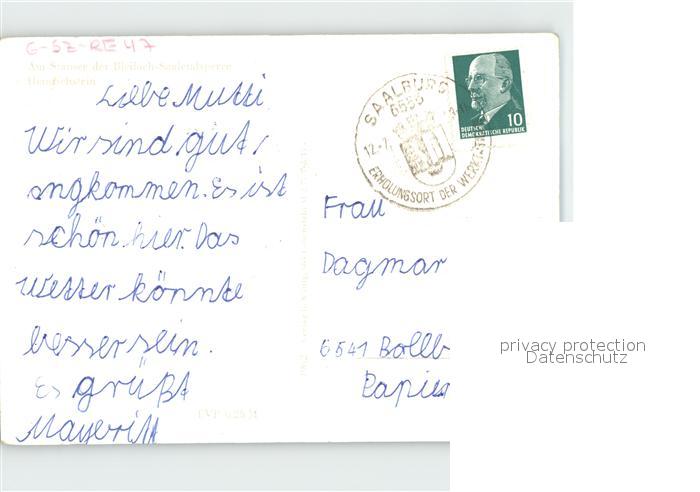 G-SZ-RE 47
Am Stausee der Bleiloch-Saaletalsperre
Liebe Mutti
Wir sind gut
angkommen. Es ist
schön hier. Das
Wetter könnte
besser sein.
Es grüßt
SAALBURG
6555
12.-7.
ERHOLUNGSORT DER WERKTÄTIGEN
10
DEUTSCHE
DEMOKRATISCHE REPUBLIK
Frau
Dagmar
6541 Bollb
Papier
EVP 0,25 M
privacy protection
Datenschutz